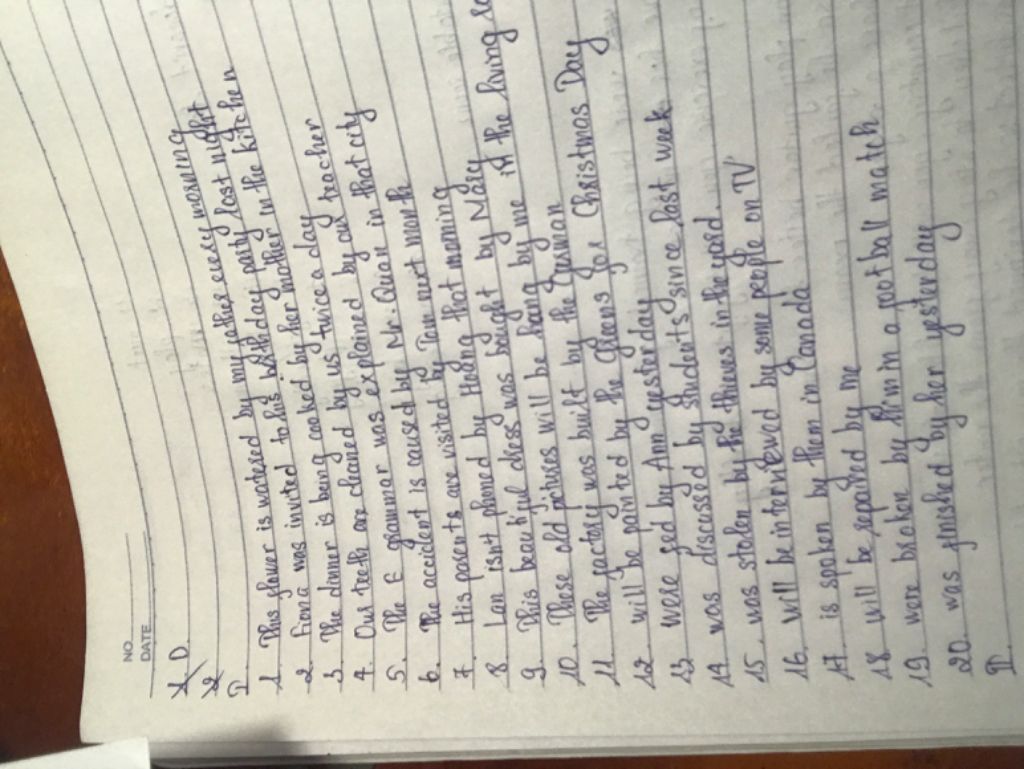 NO
DATE
1. D.
2
I.
1. This flower is watered by my father every morning
2. Fiona was invited to his birthday party last night
3. The dinner is being cooked by her mother in the kitchen
4. Our teeth are cleaned by us twice a day
5. The E grammar was explained by our teacher
6. The accident is caused by Mr. Quan in that city
7. His parents are visited by Tam next month
8. Lan isn't phoned by Hoang that morning
9. This beautiful dress was bought by Mary
10. These old pictures will be hang by me in the living
11. The factory was built by the German
12. will be painted by the Greens for Christmas Day
13. were fed by Ann yesterday
14. was discessed by students since last week
15. was stolen by the thieves in the yard.
16. will be interviewed by some people on TV
17. is spoken by them in Canada
18. will be repaired by me
19. were broken by him in a football match
20. was finished by her yesterday
II.